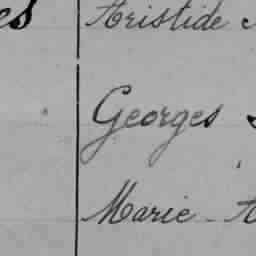 es Aristide
Georges
Marie-